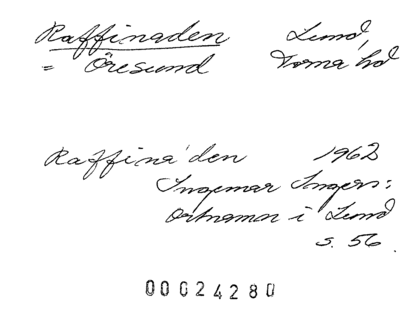 Raffinaden Lund,
= Öresund Torna hd
Raffina´den 1962
Ingemar Ingers:
Ortnamn i Lund
s. 56.
00024280